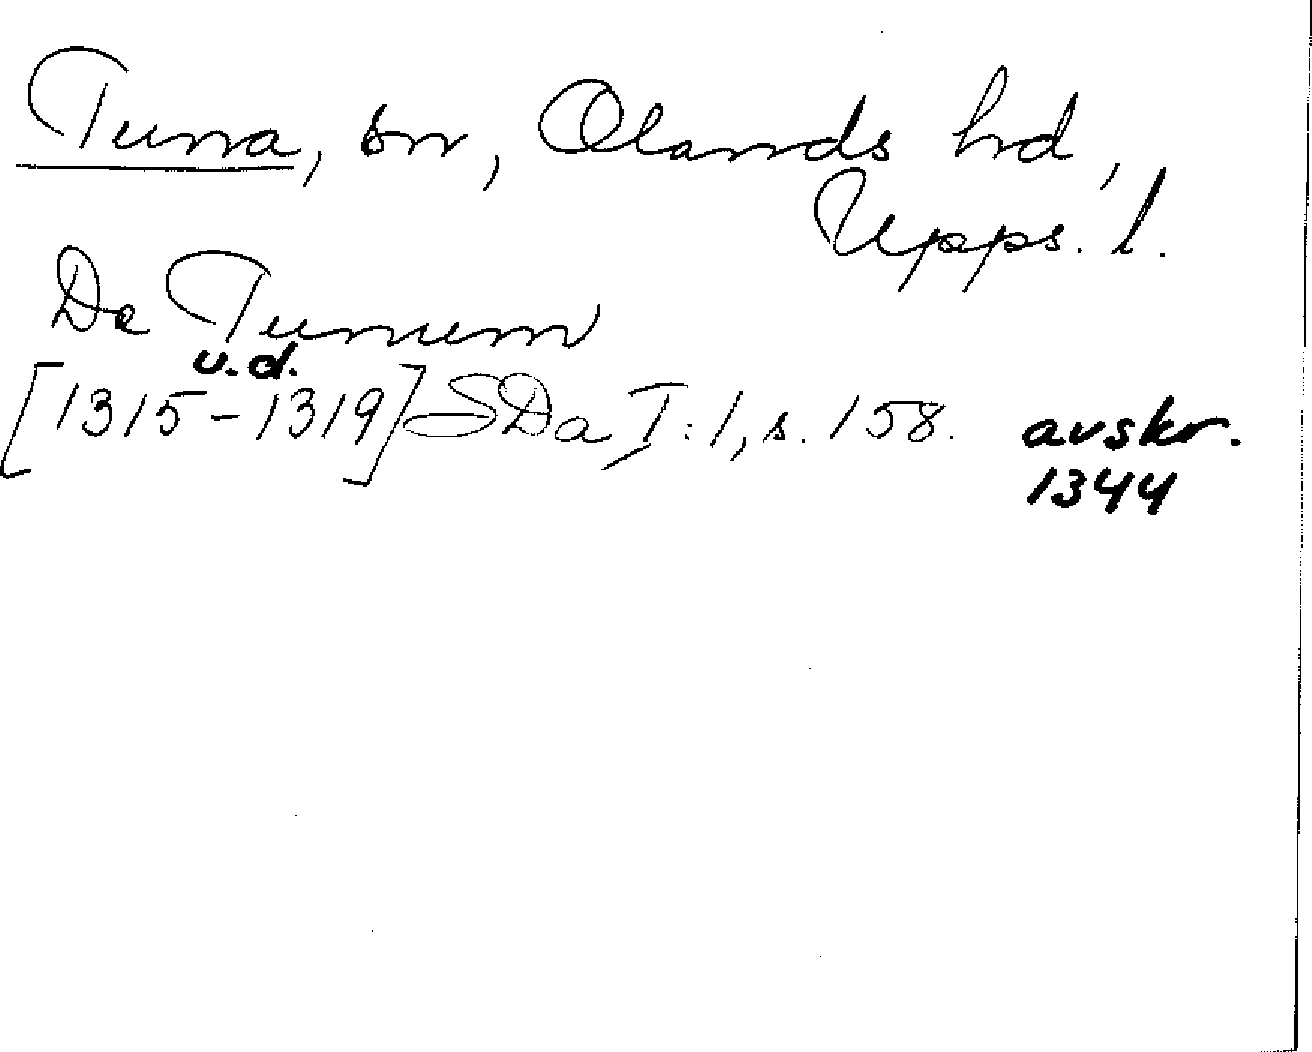 Tuna, sn, Olands hd,
Upps. l.
De Tunum
u.d.
[1315-1319] SDa I:1, s. 158. avskr.
1344